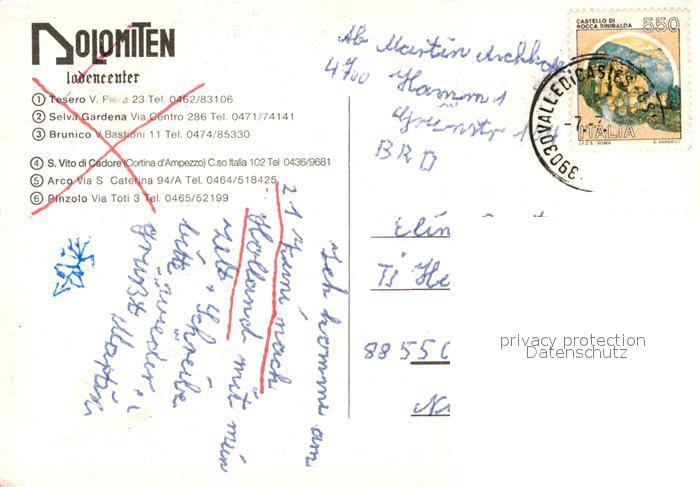 DOLOMITEN
lodencenter
① Tesero V. Fiera 23 Tel. 0462/83106
② Selva Gardena Via Centro 286 Tel. 0471/74141
③ Brunico V. Bastioni 11 Tel. 0474/85330
④ S. Vito di Cadore (Cortina d'Ampezzo) C.so Italia 102 Tel 0436/9681
⑤ Arco Via S Caterina 94/A Tel. 0464/518425
⑥ Pinzolo Via Toti 3 Tel. 0465/52199
Ich komme am
21 Juni nach
Holland mit mein
Zelt. Schreibe
bitte wieder
grüßt Martin
Ab Martin
4700 Hamm 1
BRD
CASTELLO DI
ROCCA SINIBALDA
550
ITALIA
I.P.Z.S. - ROMA E. VANGELLI
39030 VALLE DI CASIES
88 55
privacy protection
Datenschutz